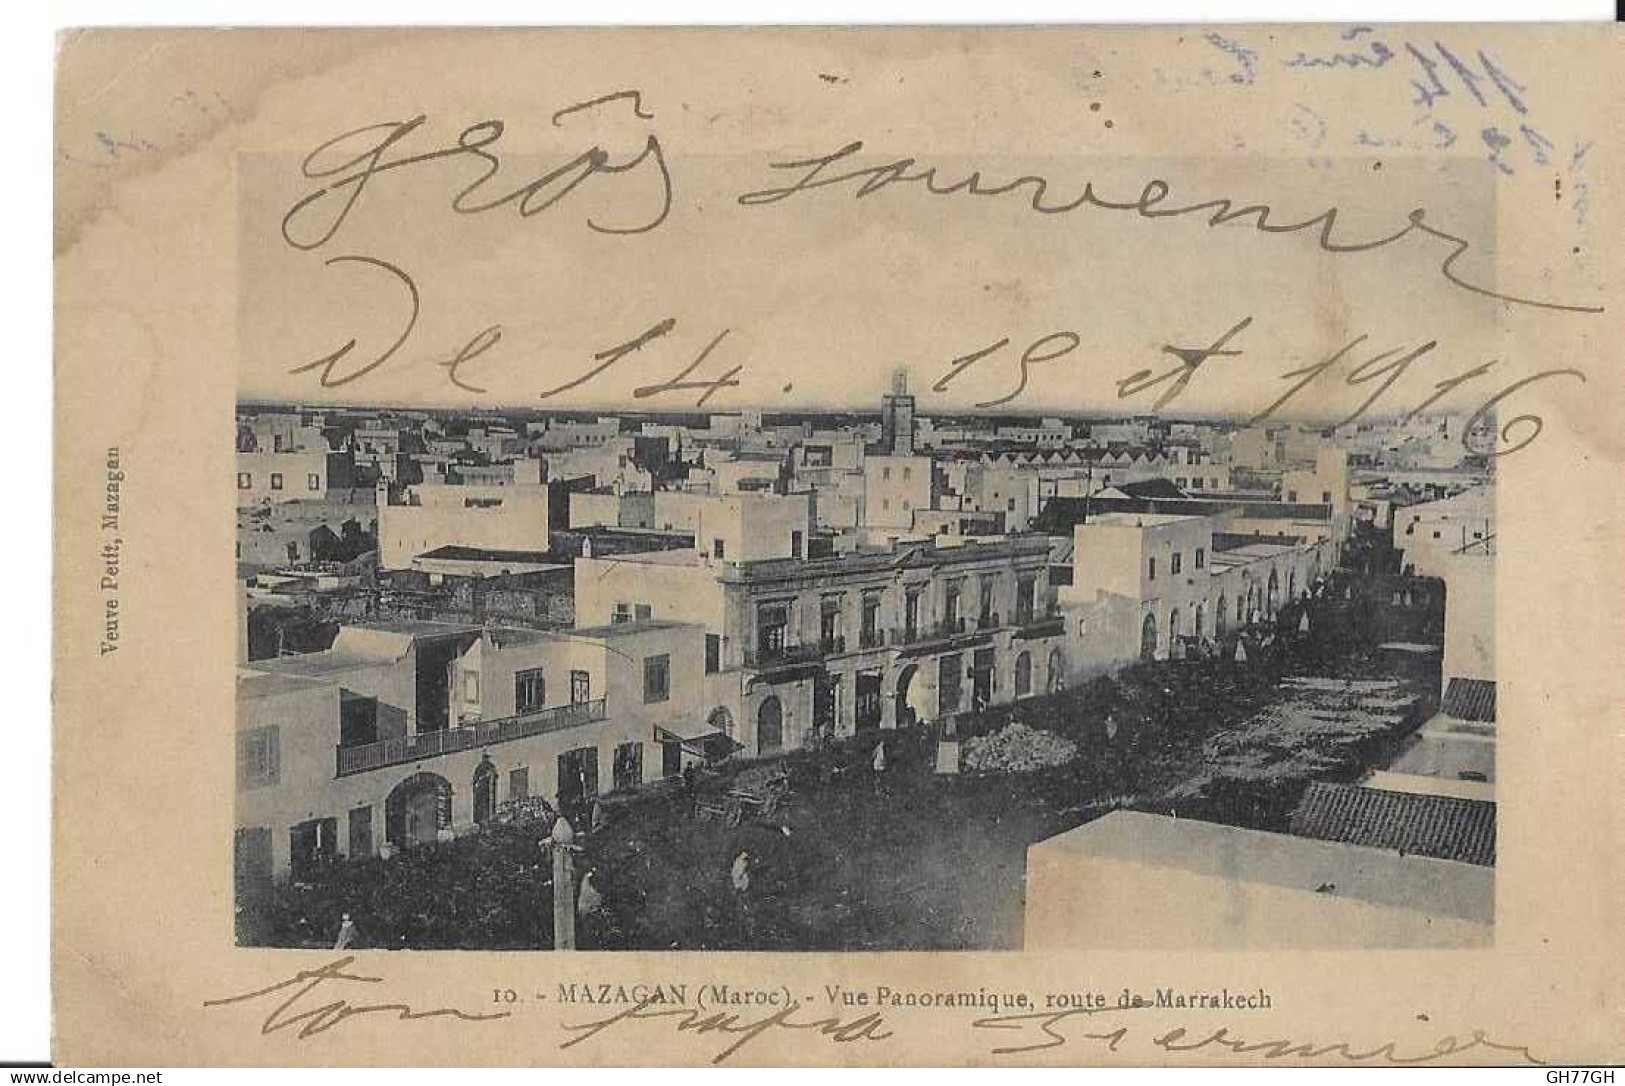 114 ème
grôs souvenir
De 14. 15 et 1916
Veuve Petit, Mazagan
10. - MAZAGAN (Maroc). - Vue Panoramique, route de Marrakech
ton papa
GH77GH